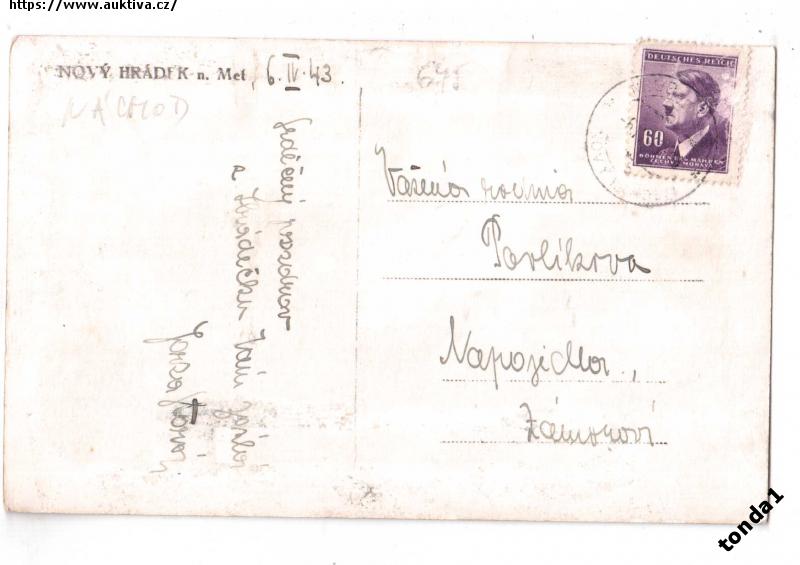 https://www.auktiva.cz/
NOVÝ HRÁDEK n. Met. 6. IV. 43.
645
NÁCHOD
DEUTSCHES REICH
60
BÖHMEN UND MÄHREN
ČECHY A MORAVA
Srdečný pozdrav
z Hrádečku Vám
Vážená rodina
Pavlíkova
Napajedla,
Zámoraví
tonda1